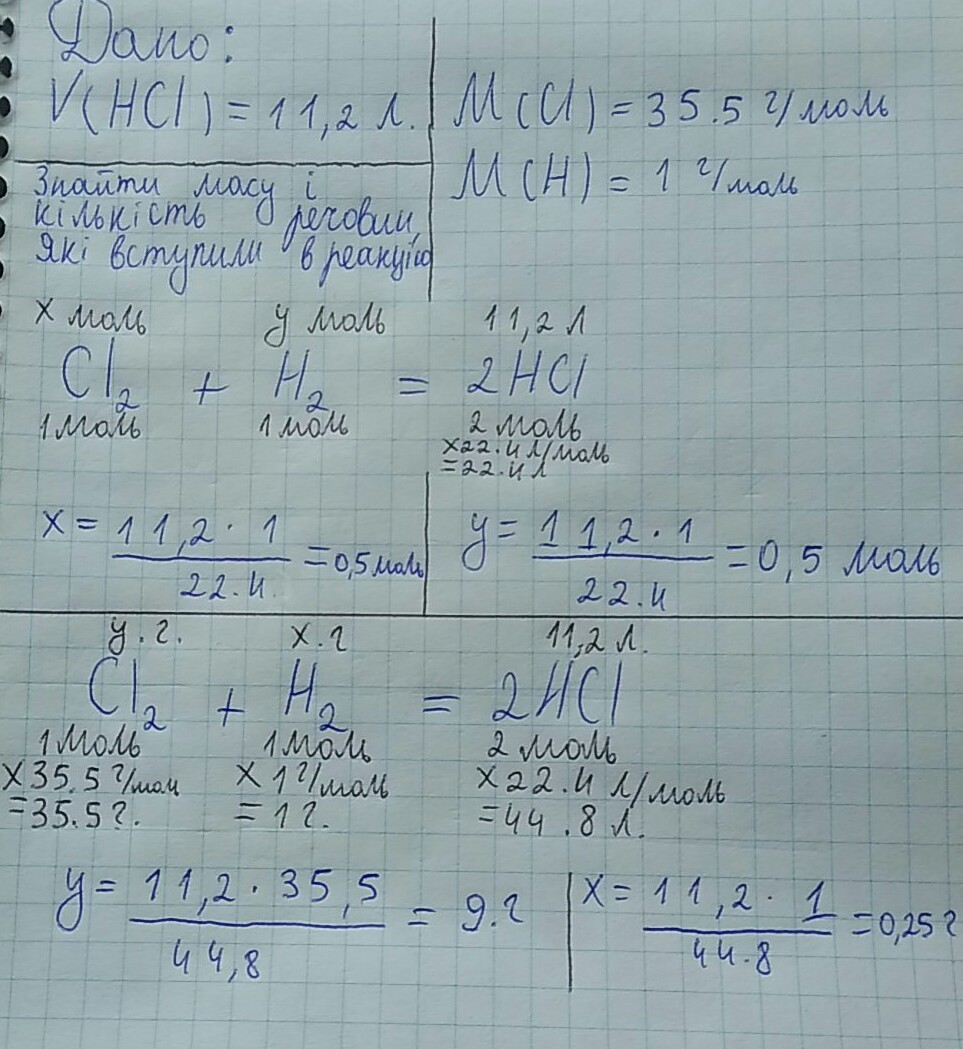 Дано:
V(HCl) = 11,2 л.
M(Cl) = 35.5 г/моль
M(H) = 1 г/моль
Знайти масу і
кількість речовин,
які вступили в реакцію
x моль y моль 11,2 л
Cl₂ + H₂ = 2HCl
1 моль 1 моль 2 моль
×22.4 л/моль
=22.4 л
x = 11,2 · 1 / 22.4. = 0,5 моль
y = 11,2 · 1 / 22.4 = 0,5 моль
y. г. x. г 11,2 л.
Cl₂ + H₂ = 2HCl
1 моль 1 моль 2 моль
×35.5 г/моль ×1 г/моль ×22.4 л/моль
=35.5 г. =1 г. =44.8 л.
y = 11,2 · 35,5 / 44,8 = 9. г
x = 11,2 · 1 / 44.8 = 0,25 г